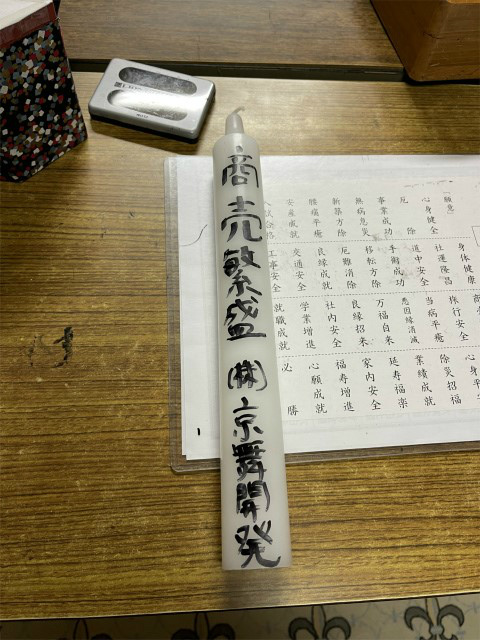 商売繁盛 ㈱京舞開発
「願意」
心身健全
厄除
事業成功
無病息災
新築方除
腫瘍平癒
安産成就
身体健康
社運隆昌
道中安全
手術成功
移転方除
厄難消除
良縁成就
交通安全
工事安全
旅行安全
当病平癒
悪因縁消滅
万福自来
良縁招来
社内安全
学業増進
就職成就
心身平
除災招福
業績成就
延寿福楽
家内安全
福寿増進
心願成就
必勝